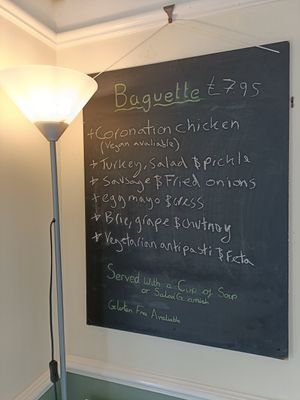 Baguette £7.95
+ Coronation chicken
(Vegan avaliable)
* Turkey, Salad & pickle
* Sausage & Fried onions
* egg mayo & cress
* Brie, grape & chutney
* Vegetarian antipasti & Feta
Served with a Cup of Soup
or Salad Garnish
Gluten Free Available